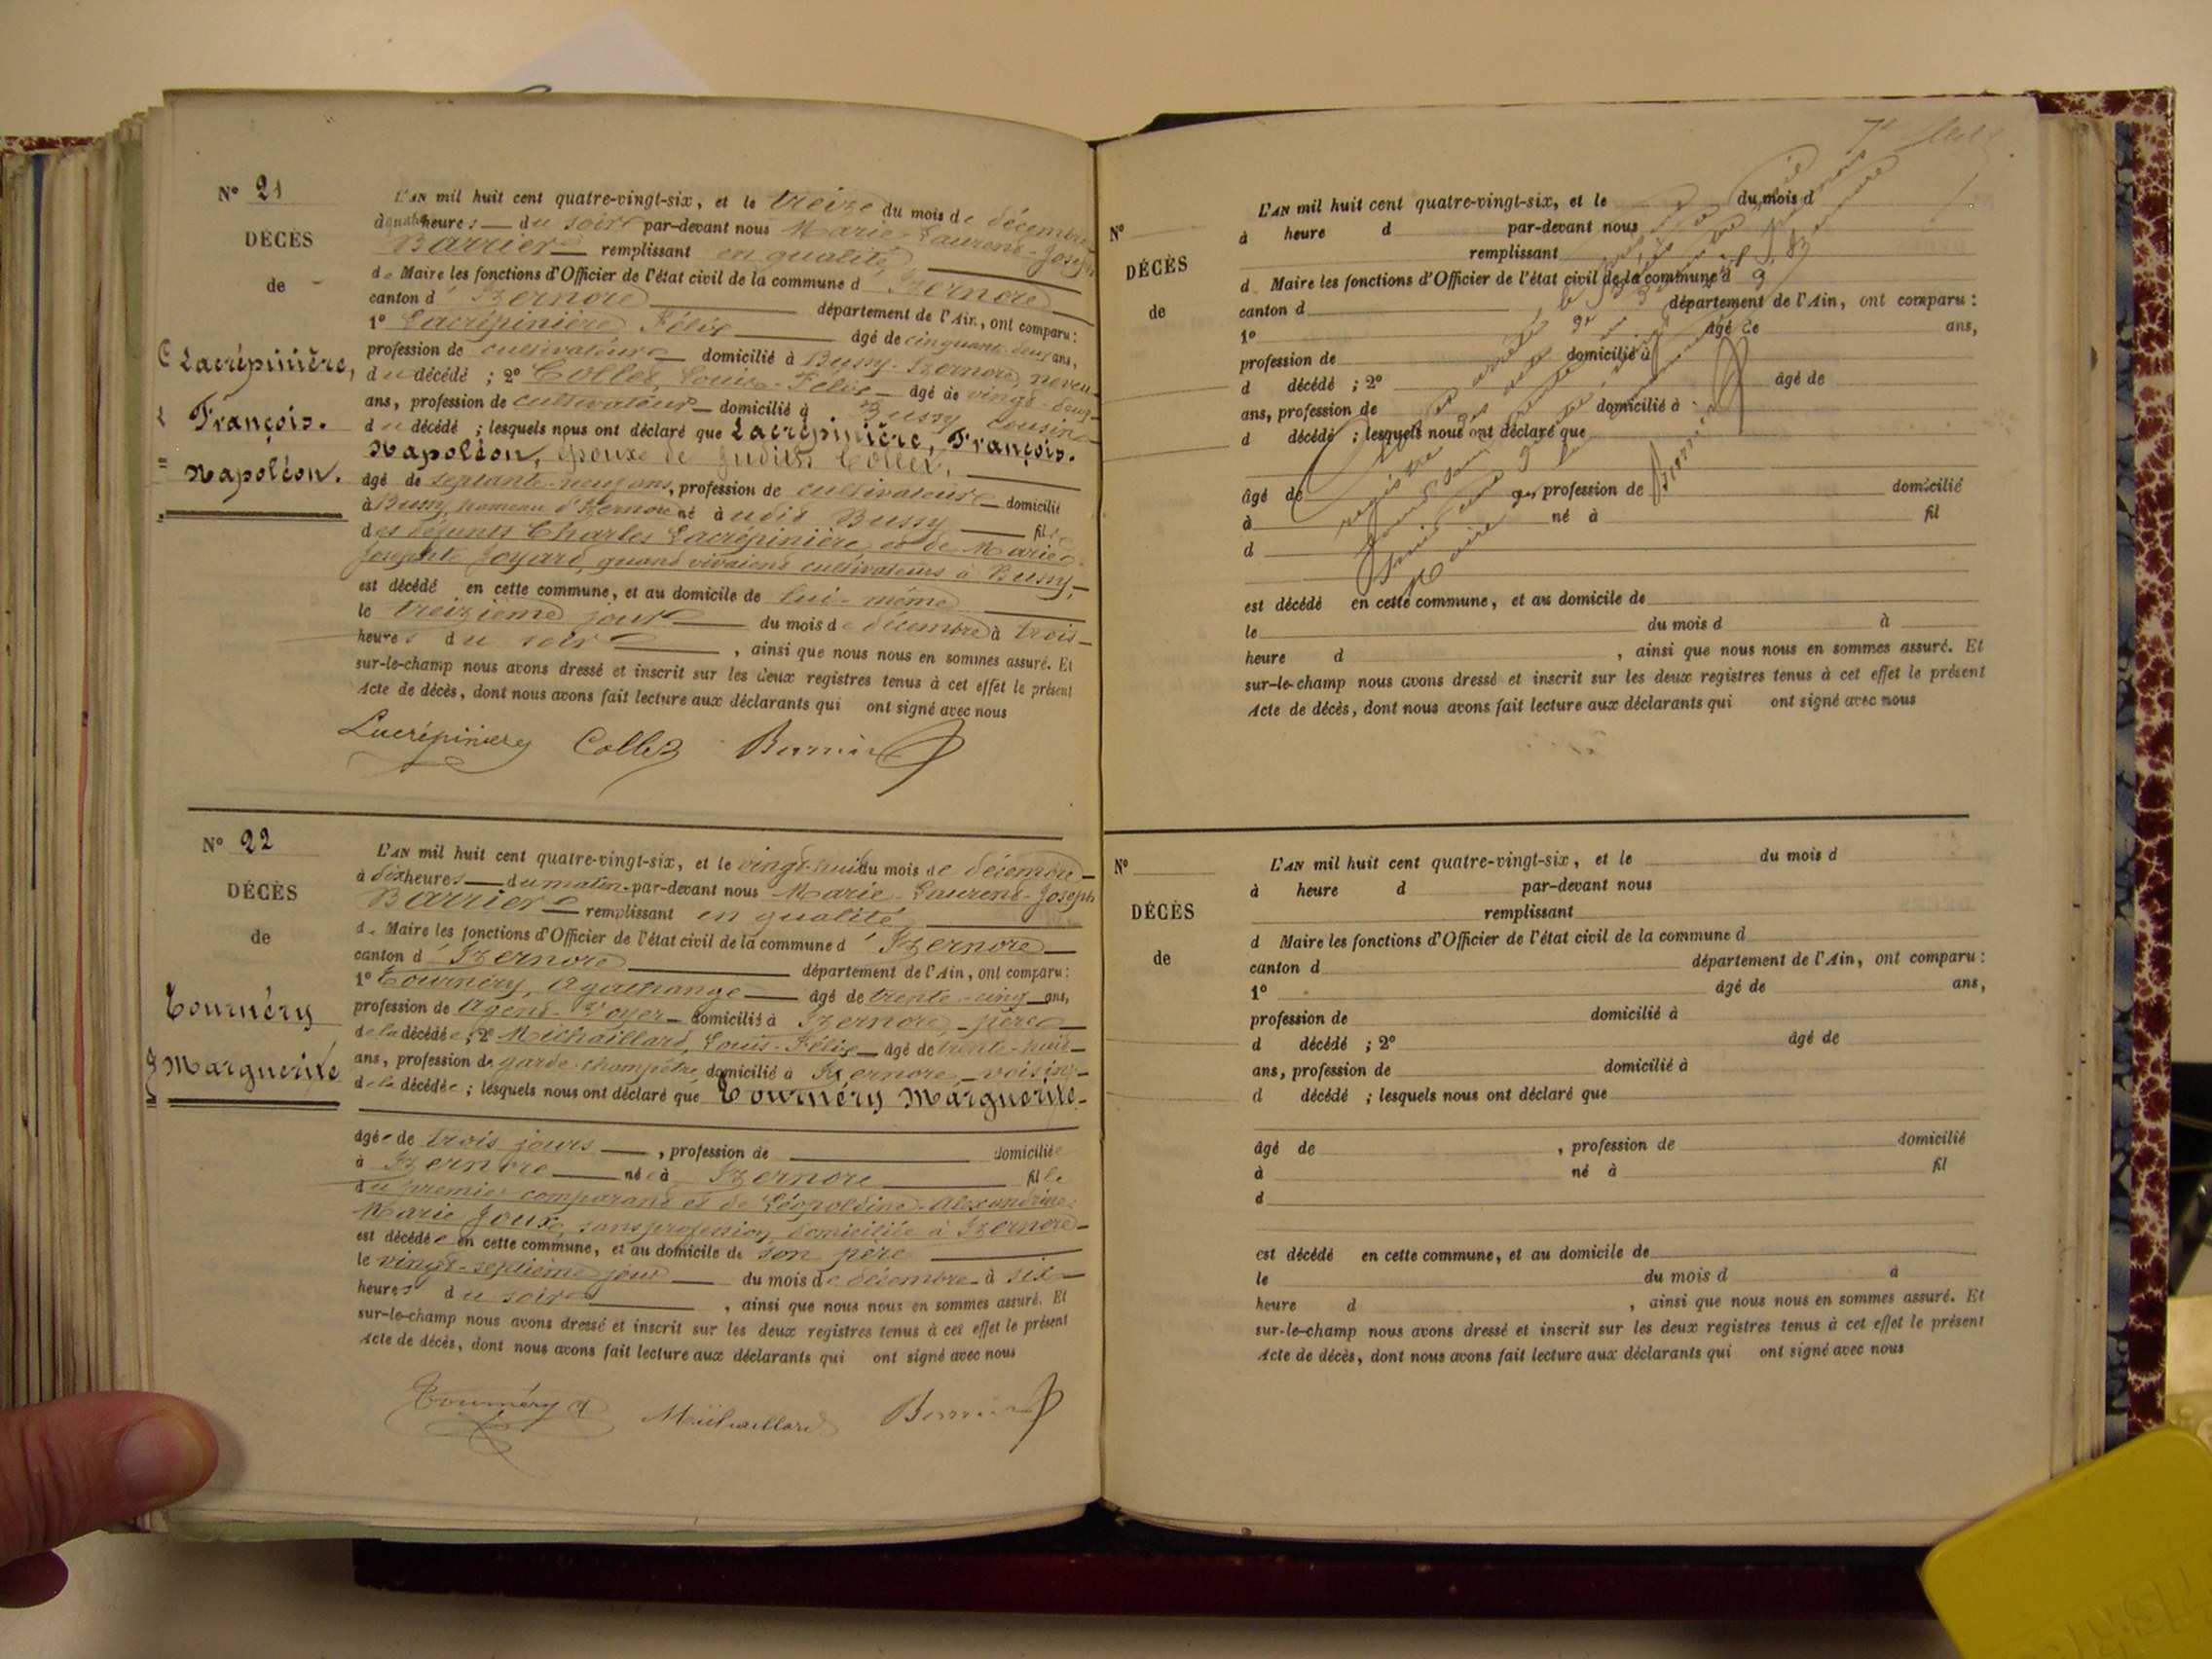 N° 21
DÉCÈS
de
Lacrépinière,
François.
Napoléon.
L'AN mil huit cent quatre-vingt-six, et le treize du mois de décembre
à quatre heures du soir par-devant nous Marie-Laurent-Joseph
Barrier remplissant en qualité
de Maire les fonctions d'Officier de l'état civil de la commune d'Izernore
canton d'Izernore département de l'Ain, ont comparu :
1° Lacrépinière Félix âgé de cinquante deux ans,
profession de cultivateur domicilié à Bussy-Izernore, neveu
du décédé ; 2° Collet, Louis-Félix âgé de vingt-deux
ans, profession de cultivateur domicilié à Bussy cousin
du décédé ; lesquels nous ont déclaré que Lacrépinière, François.
Napoléon, époux de Judith Collet,
âgé de septante-neuf ans, profession de cultivateur domicilié
à Bussy, hameau d'Izernore né à udit Bussy fils
des défunts Charles Lacrépinière et de Marie
Josephte Joyard, quand vivaient cultivateurs à Bussy,
est décédé en cette commune, et au domicile de lui-même
le treizième jour du mois de décembre à trois
heures du soir, ainsi que nous nous en sommes assuré. Et
sur-le-champ nous avons dressé et inscrit sur les deux registres tenus à cet effet le présent
Acte de décès, dont nous avons fait lecture aux déclarants qui ont signé avec nous
Lacrépinière Collet Barrier
N° 22
DÉCÈS
de
Tournéry
Marguerite
L'AN mil huit cent quatre-vingt-six, et le vingt-huit du mois de décembre
à dix heures du matin par-devant nous Marie-Laurent-Joseph
Barrier remplissant en qualité
de Maire les fonctions d'Officier de l'état civil de la commune d'Izernore
canton d'Izernore département de l'Ain, ont comparu :
1° Tournéry, Agathange âgé de trente-cinq ans,
profession de Agent-Voyer domicilié à Izernore, père
de la décédée ; 2° Michaillard, Louis-Félix âgé de trente-huit
ans, profession de garde-champêtre domicilié à Izernore, voisin
de la décédée ; lesquels nous ont déclaré que Tournéry Marguerite
âgée de trois jours, profession de domiciliée
à Izernore née à Izernore fille
du premier comparant et de Léopoldine-Alexandrine-
Marie Joux, sans profession, domiciliée à Izernore
est décédée en cette commune, et au domicile de son père
le vingt-septième jour du mois de décembre à six
heures du soir, ainsi que nous nous en sommes assuré. Et
sur-le-champ nous avons dressé et inscrit sur les deux registres tenus à cet effet le présent
Acte de décès, dont nous avons fait lecture aux déclarants qui ont signé avec nous
Tournéry A Michaillard Barrier
N°
DÉCÈS
de
L'AN mil huit cent quatre-vingt-six, et le du mois d
à heure d par-devant nous
remplissant
d Maire les fonctions d'Officier de l'état civil de la commune d
canton d département de l'Ain, ont comparu :
1° âgé de ans,
profession de domicilié à
d décédé ; 2° âgé de
ans, profession de domicilié à
d décédé ; lesquels nous ont déclaré que
âgé de profession de domicilié
à né à fil
d
est décédé en cette commune, et au domicile de
le du mois d à
heure d , ainsi que nous nous en sommes assuré. Et
sur-le-champ nous avons dressé et inscrit sur les deux registres tenus à cet effet le présent
Acte de décès, dont nous avons fait lecture aux déclarants qui ont signé avec nous
N°
DÉCÈS
de
L'AN mil huit cent quatre-vingt-six, et le du mois d
à heure d par-devant nous
remplissant
d Maire les fonctions d'Officier de l'état civil de la commune d
canton d département de l'Ain, ont comparu :
1° âgé de ans,
profession de domicilié à
d décédé ; 2° âgé de
ans, profession de domicilié à
d décédé ; lesquels nous ont déclaré que
âgé de , profession de domicilié
à né à fil
d
est décédé en cette commune, et au domicile de
le du mois d à
heure d , ainsi que nous nous en sommes assuré. Et
sur-le-champ nous avons dressé et inscrit sur les deux registres tenus à cet effet le présent
Acte de décès, dont nous avons fait lecture aux déclarants qui ont signé avec nous